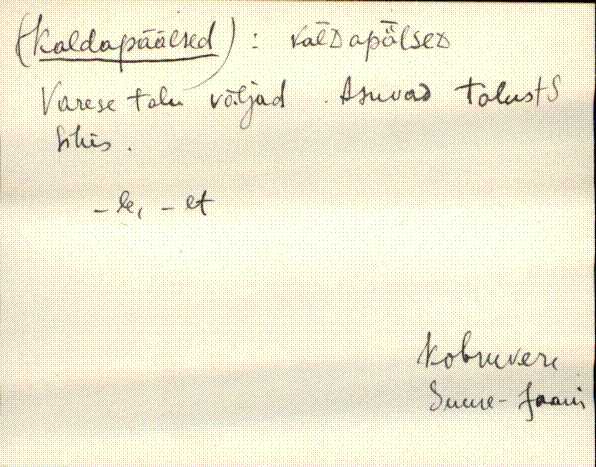 (Kaldapäälsed) : kaldapälsed
Varese talu väljad. Asuvad talust S
sihis.
-le, -et
Kobruvere
Suure-Jaani